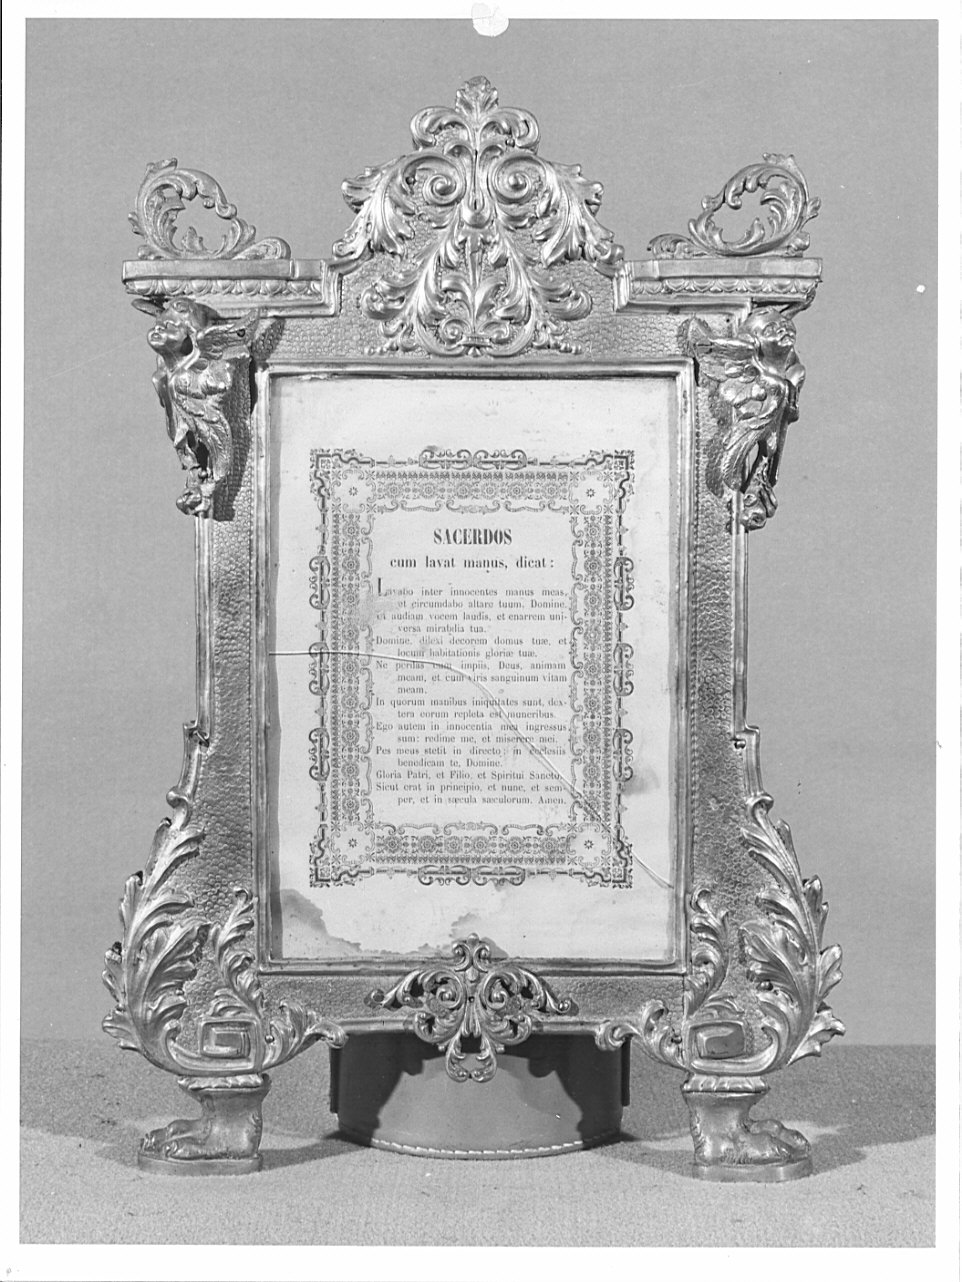 SACERDOS
cum lavat manus, dicat:
Lavabo inter innocentes manus meas,
et circumdabo altare tuum, Domine.
et audiam vocem laudis, et enarrem uni-
versa mirabilia tua.
Domine, dilexi decorem domus tuæ, et
locum habitationis gloriæ tuæ.
Ne perdas cum impiis, Deus, animam
meam, et cum viris sanguinum vitam
meam.
In quorum manibus iniquitates sunt, dex-
tera eorum repleta est muneribus.
Ego autem in innocentia mea ingressus
sum: redime me, et miserere mei.
Pes meus stetit in directo: in ecclesiis
benedicam te, Domine.
Gloria Patri, et Filio, et Spiritui Sancto.
Sicut erat in principio, et nunc, et sem-
per, et in sæcula sæculorum. Amen.